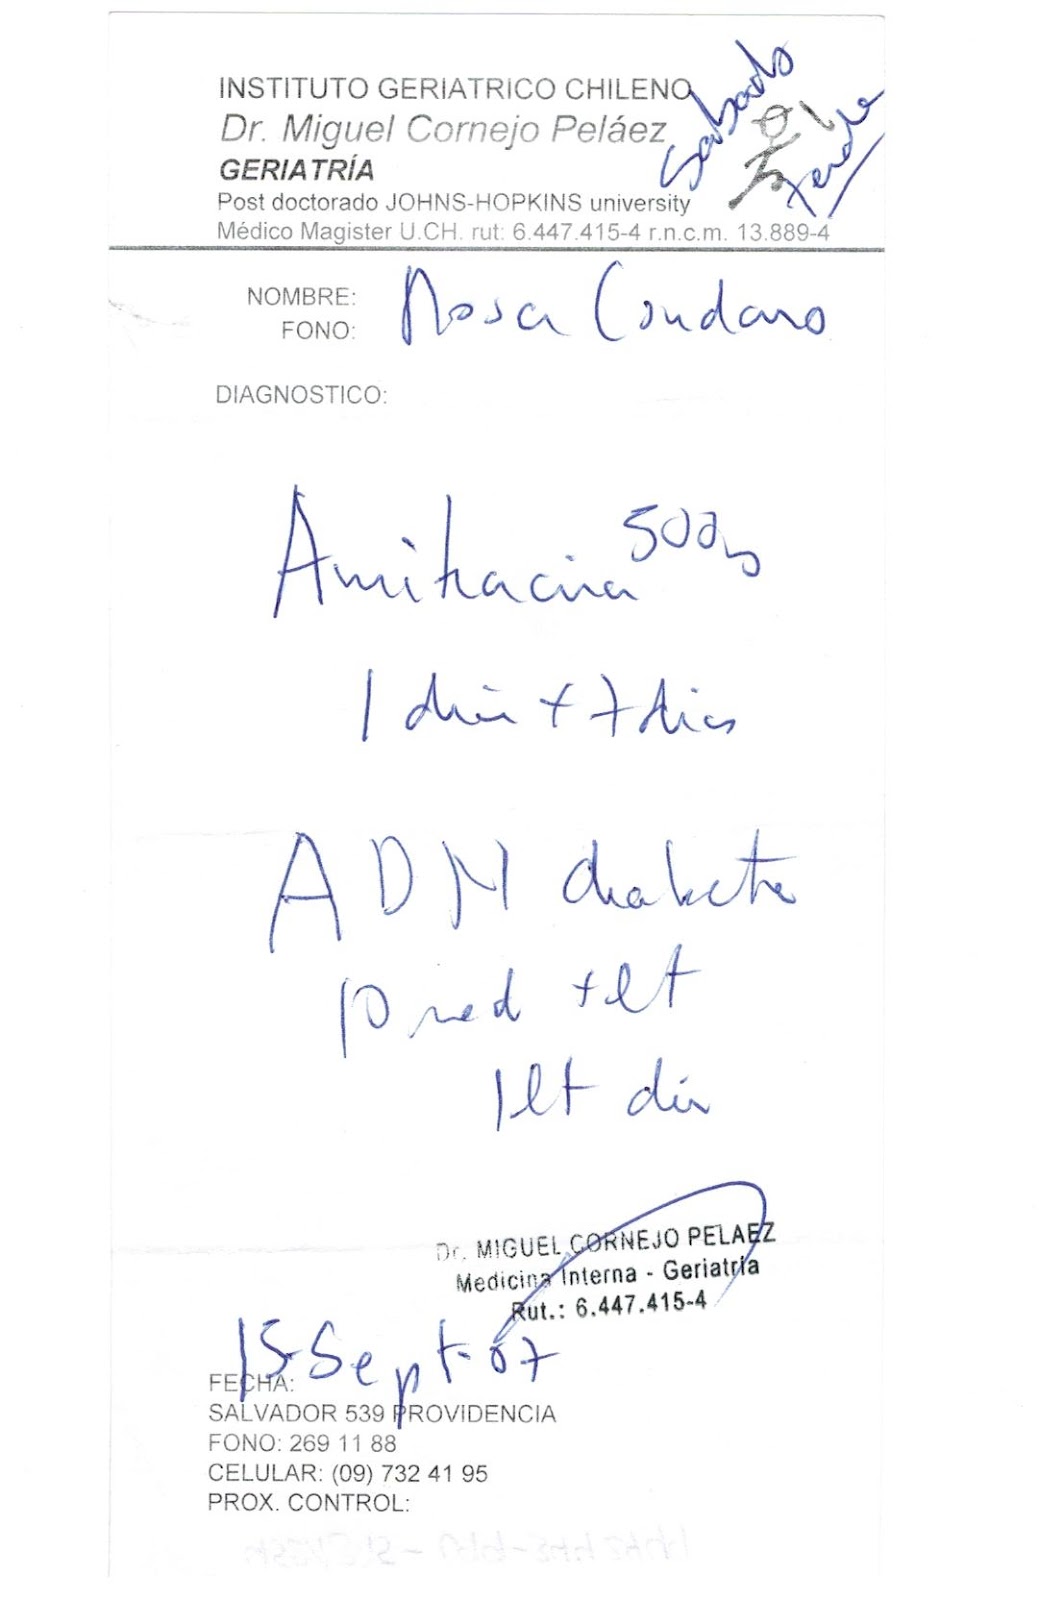 INSTITUTO GERIATRICO CHILENO
Dr. Miguel Cornejo Peláez
GERIATRÍA
Post doctorado JOHNS-HOPKINS university
Médico Magister U.CH. rut: 6.447.415-4 r.n.c.m. 13.889-4
Sabado
tarde
NOMBRE: Rosa
FONO:
DIAGNOSTICO:
Amikacina 500
1 día x 7 dias
ADM
10 x lt
1 lt día
Dr. MIGUEL CORNEJO PELAEZ
Medicina Interna - Geriatría
Rut.: 6.447.415-4
15-Sept-07
FECHA:
SALVADOR 539 PROVIDENCIA
FONO: 269 11 88
CELULAR: (09) 732 41 95
PROX. CONTROL: